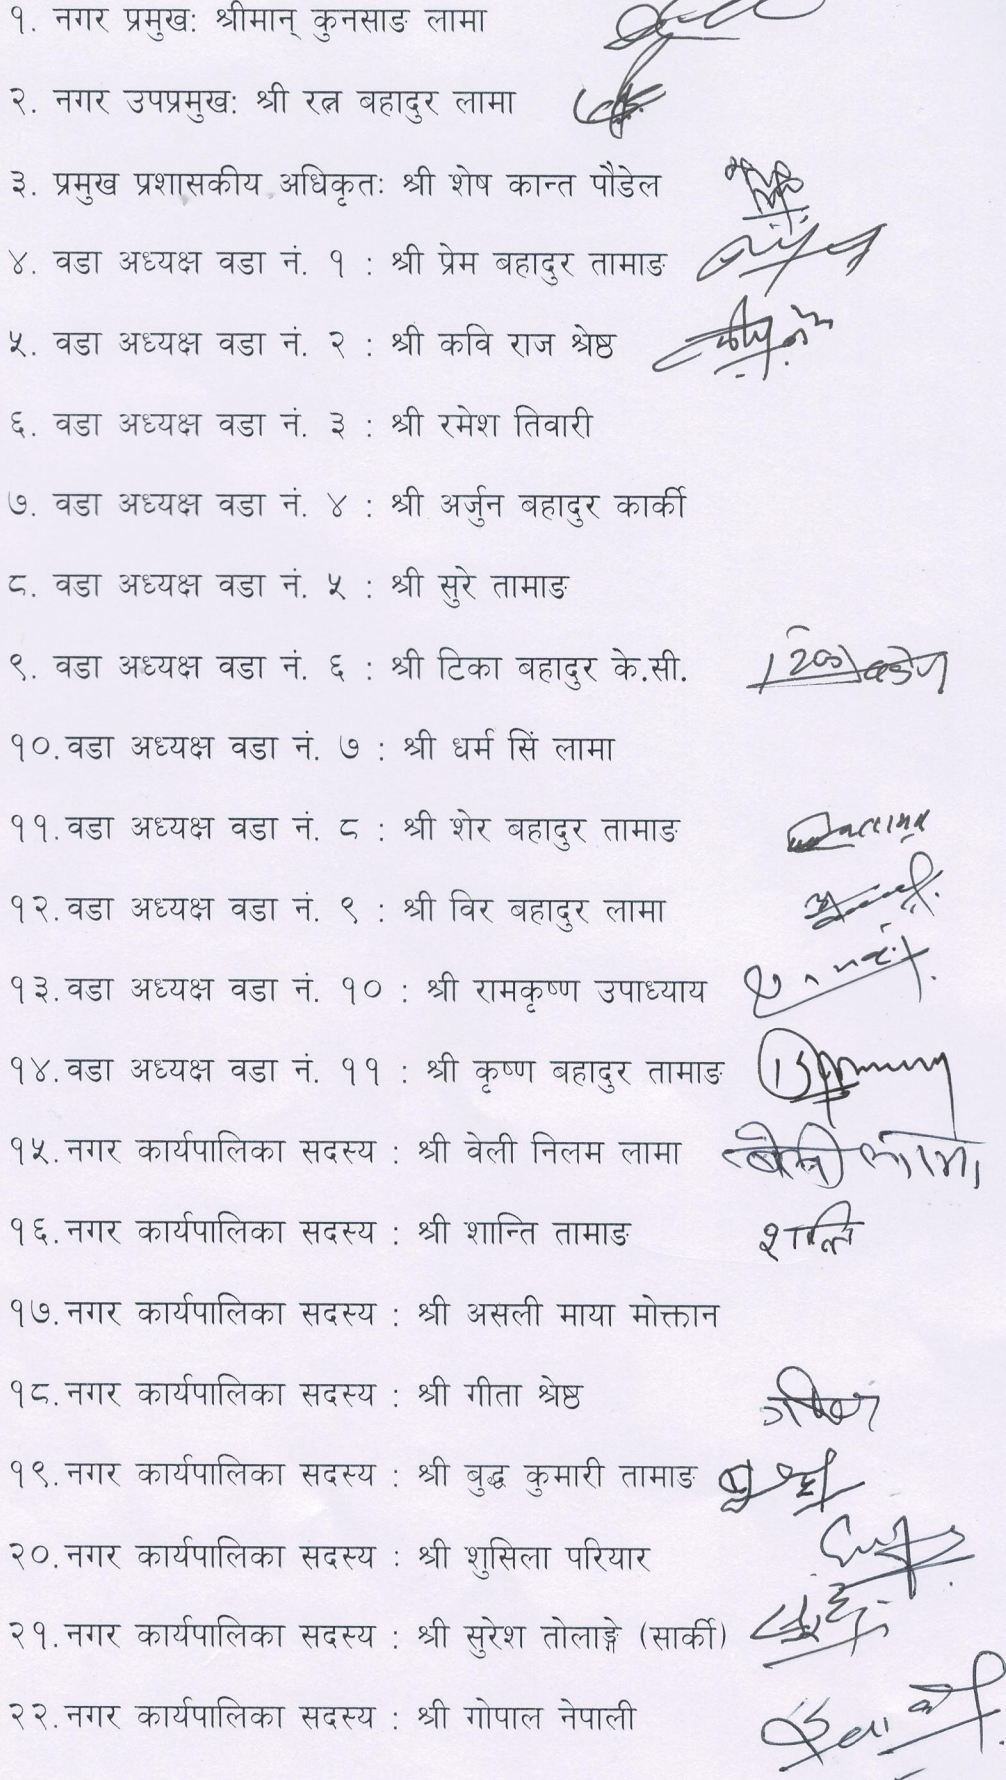 १. नगर प्रमुख: श्रीमान् कुनसाङ लामा
२. नगर उपप्रमुख: श्री रत्न बहादुर लामा
३. प्रमुख प्रशासकीय अधिकृत: श्री शेष कान्त पौडेल
४. वडा अध्यक्ष वडा नं. १ : श्री प्रेम बहादुर तामाङ
५. वडा अध्यक्ष वडा नं. २ : श्री कवि राज श्रेष्ठ
६. वडा अध्यक्ष वडा नं. ३ : श्री रमेश तिवारी
७. वडा अध्यक्ष वडा नं. ४ : श्री अर्जुन बहादुर कार्की
८. वडा अध्यक्ष वडा नं. ५ : श्री सुरे तामाङ
९. वडा अध्यक्ष वडा नं. ६ : श्री टिका बहादुर के.सी.
१०. वडा अध्यक्ष वडा नं. ७ : श्री धर्म सिं लामा
११. वडा अध्यक्ष वडा नं. ८ : श्री शेर बहादुर तामाङ
१२. वडा अध्यक्ष वडा नं. ९ : श्री विर बहादुर लामा
१३. वडा अध्यक्ष वडा नं. १० : श्री रामकृष्ण उपाध्याय
१४. वडा अध्यक्ष वडा नं. ११ : श्री कृष्ण बहादुर तामाङ
१५. नगर कार्यपालिका सदस्य : श्री वेली निलम लामा
१६. नगर कार्यपालिका सदस्य : श्री शान्ति तामाङ शान्ति
१७. नगर कार्यपालिका सदस्य : श्री असली माया मोक्तान
१८. नगर कार्यपालिका सदस्य : श्री गीता श्रेष्ठ
१९. नगर कार्यपालिका सदस्य : श्री बुद्ध कुमारी तामाङ
२०. नगर कार्यपालिका सदस्य : श्री शुसिला परियार
२१. नगर कार्यपालिका सदस्य : श्री सुरेश तोलाङ्गे (सार्की)
२२. नगर कार्यपालिका सदस्य : श्री गोपाल नेपाली